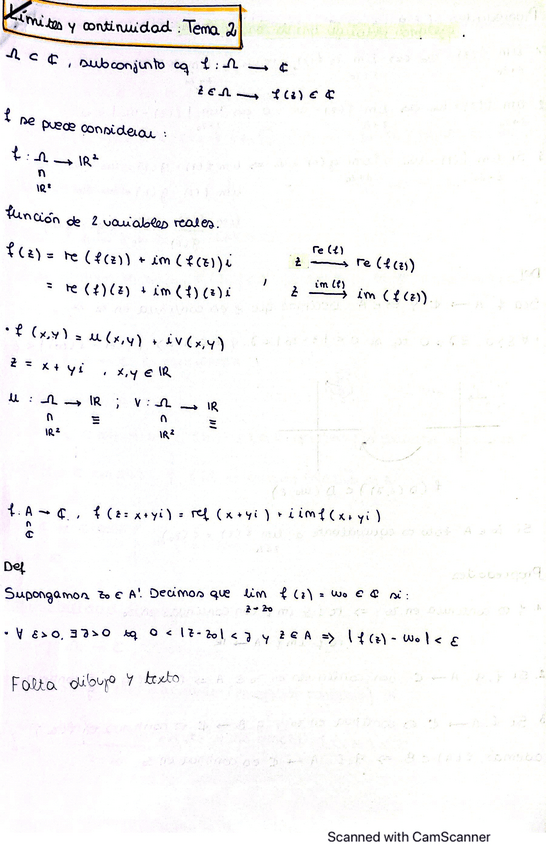 Límites y continuidad: Tema 2
Ω ⊂ ℂ, subconjunto tq f : Ω → ℂ
z ∈ Ω → f(z) ∈ ℂ
f se puece considerar:
f : Ω → ℝ²
∩
ℝ²
función de 2 variables reales.
f(z) = re(f(z)) + im(f(z))i , z re(f)→ re(f(z))
= re(f)(z) + im(f)(z)i z im(f)→ im(f(z))
· f(x,y) = u(x,y) + iv(x,y)
z = x + yi , x,y ∈ ℝ
u : Ω → ℝ ; v : Ω → ℝ
∩ ≡ ∩ ≡
ℝ² ℝ²
f : A → ℂ, f(z = x+yi) = ref(x+yi) + i imf(x+yi)
∩
ℂ
Def
Supongamos z₀ ∈ A'. Decimos que lim f(z) = w₀ ∈ ℂ si:
z→z₀
· ∀ ε>0, ∃ δ>0 tq 0 < |z-z₀| < δ y z ∈ A ⇒ |f(z) - w₀| < ε
Falta dibujo y texto
Scanned with CamScanner